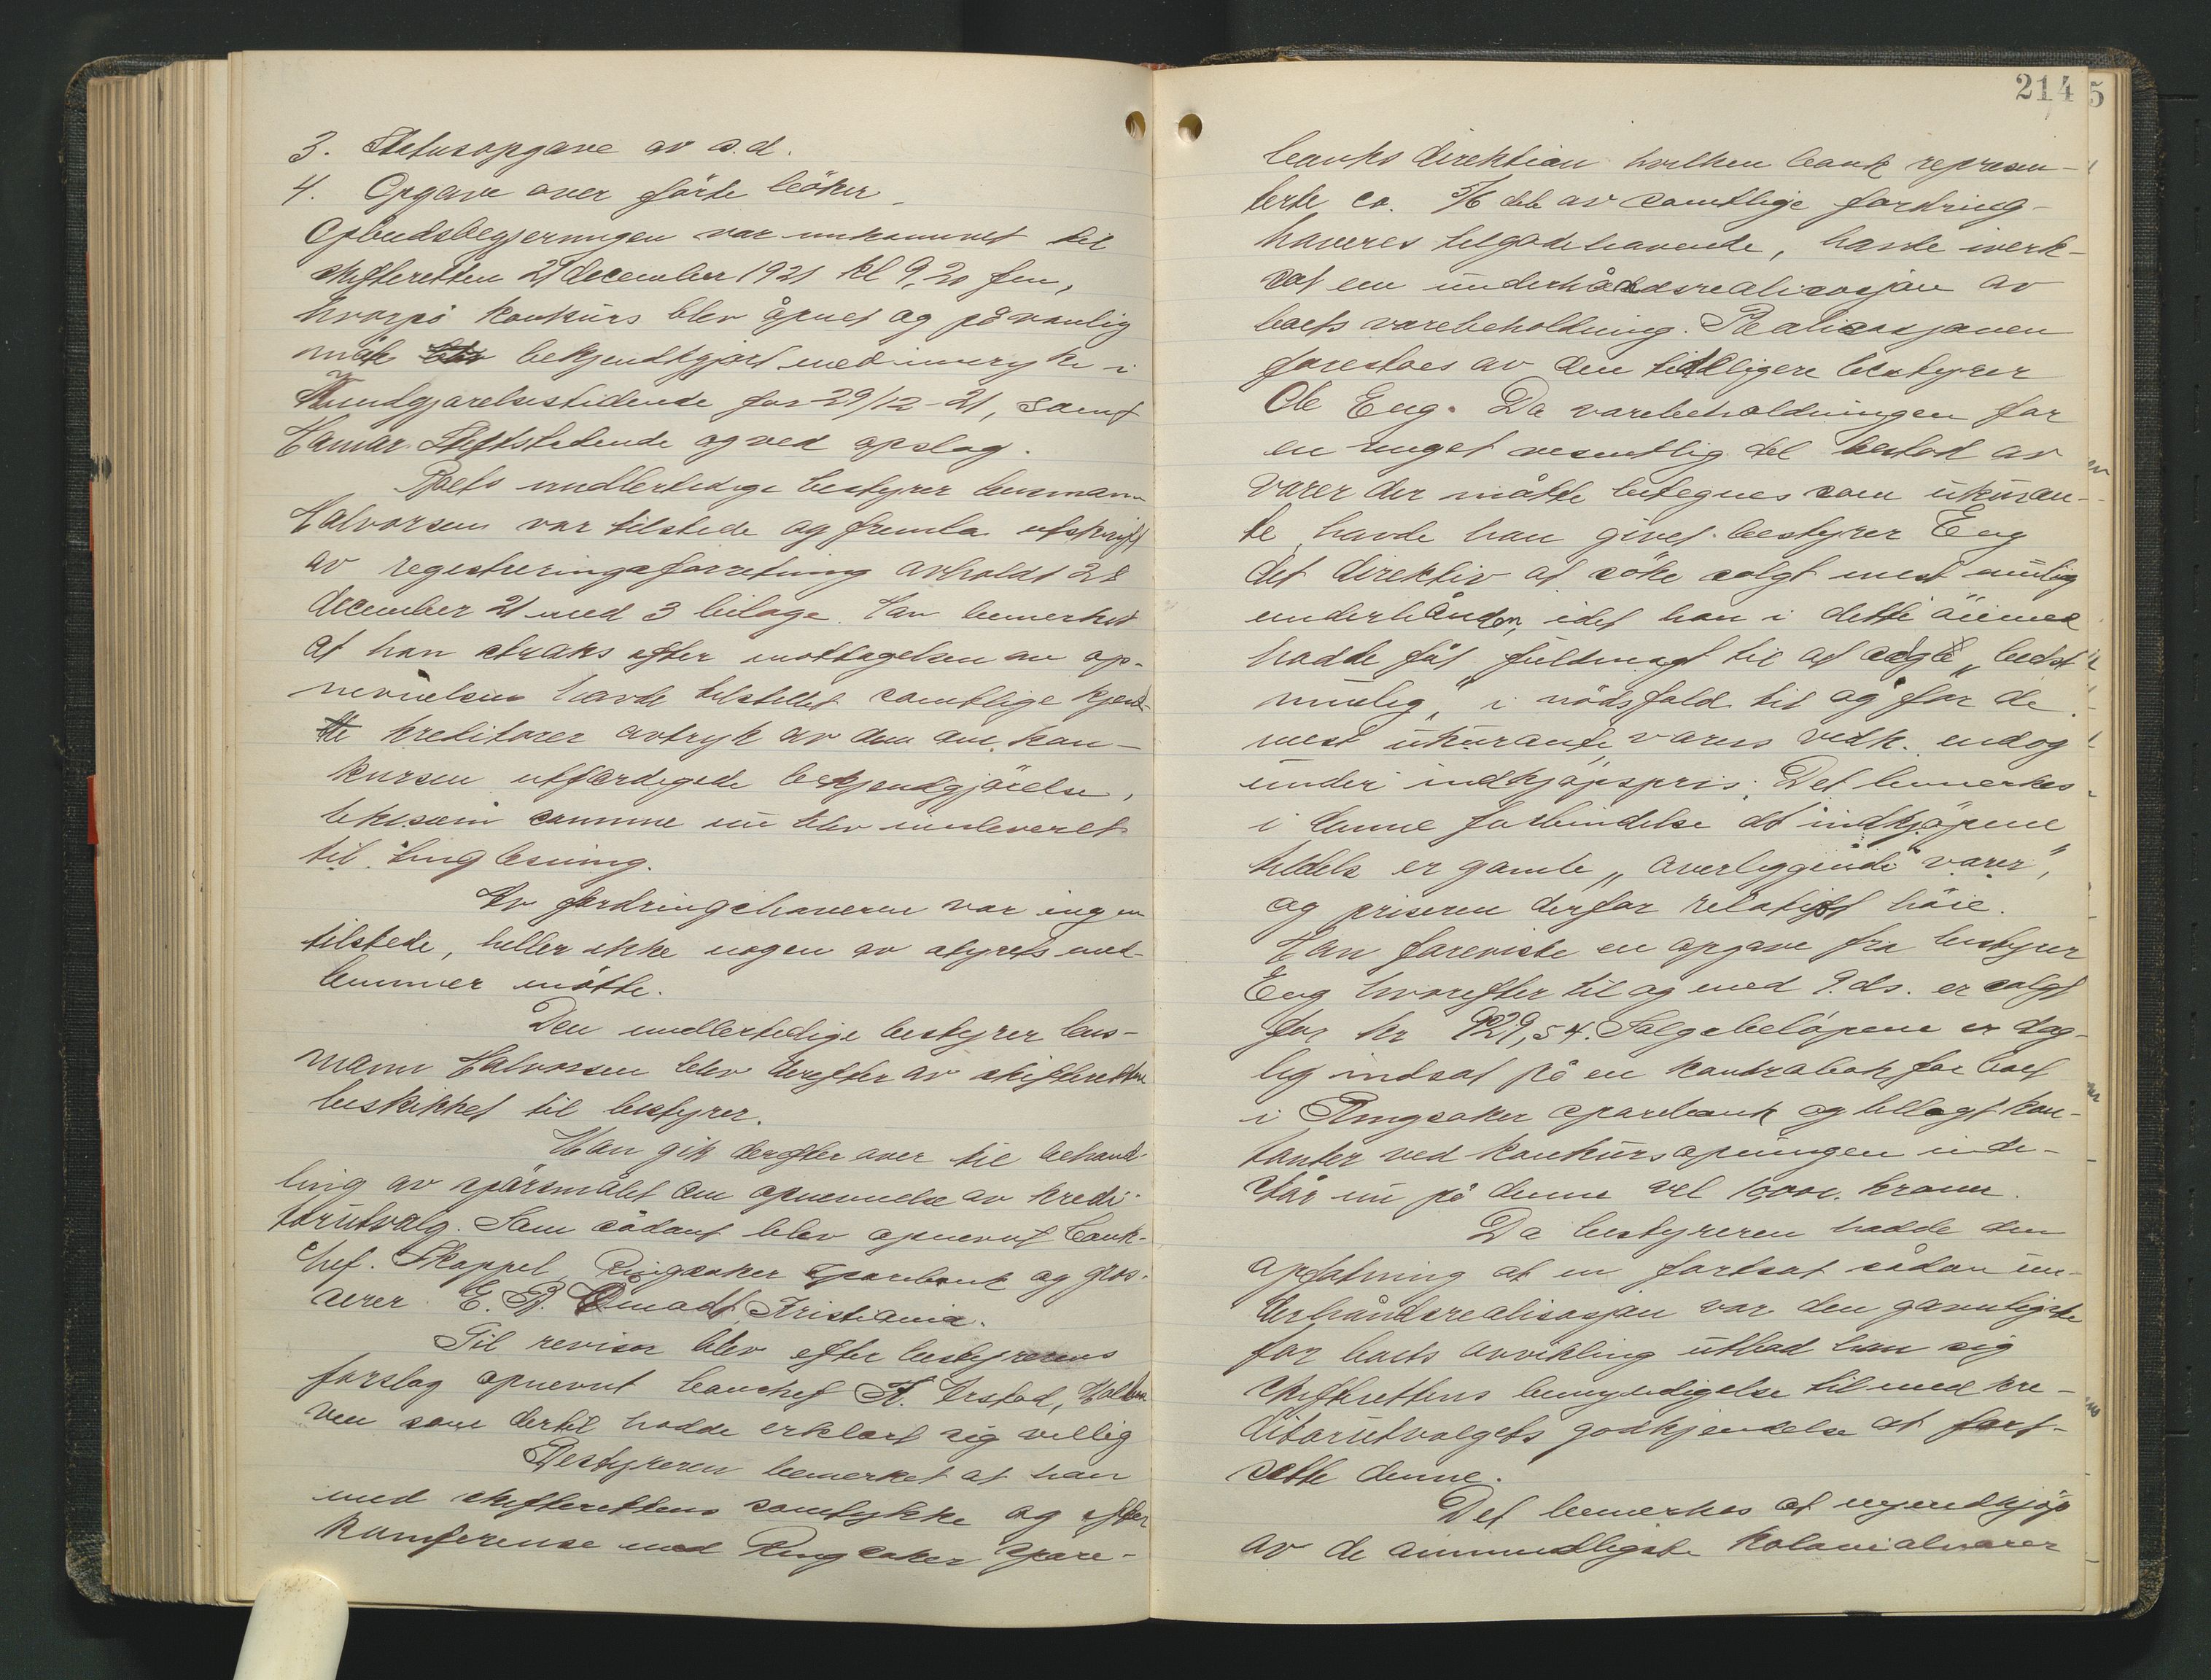 3. Statusopgave av s.d.
4. Opgave over förte böker.
Opbudsbegjeringen var innkommet til
skifteretten 27 december 1921 kl 9,20 fm,
hvorpå konkurs blev åpnet og på vanlig
måte blev bekjendtgjort med inryk i
Kundgjørelsestidende for 29/12-21, samt
Hamar Stiftstidende og ved opslag.
Boets midlertidige bestyrer lensmann
Halvorsen var tilstede og fremla utskrift
av registreringsforretning avholdt 28
december 21 med 3 bilage. Han bemerket
at han straks efter mottagelsen av op-
nevnelsen havde tilstillet samtlige kjend-
te kreditorer avtryk av den om kon-
kursen utfærdigede bekjendtgjörelse,
liksom samme nu blev innleveret
til tinglesning.
Av fordringshaverne var ingen
tilstede, heller ikke nogen av styrets med-
lemmer møtte.
Den midlertidige bestyrer lens-
mann Halvorsen blev derefter av skifteretten
beskikket til bestyrer.
Man gik derefter over til behand-
ling av spørsmålet om opnevnelse av kredi-
torutvalg. Som sådant blev opnevnt bank-
chef Skappel, Ringsaker sparebank og gros-
serer E. B. Kristiania.
Til revisor blev efter bestyrerens
forslag opnevnt banchef
som dertil hadde erklært sig villig
Bestyreren bemerket at han
med skifterettens samtykke og efter
konferense med Ringsaker spare-
214 5
banks direktion hvilken bank represen-
terte ca. 5/6 del av samtlige fordring-
haveres tilgodehavende, havde iverk-
sat en underhåndsrealisasjon av
boets varebeholdning. Realisasjonen
forestoes av den tidligere bestyrer
Ole Eng. Da varebeholdningen for
en meget vesentlig del bestod av
varer der måtte betegnes som ukuran-
te, havde han givet bestyrer Eng
det direktiv at söke solgt mest mulig
underhånden, idet han i dette öiemed
hadde fåt fuldmagt til at selge "bedst
mulig" i nödsfald til og for de
mest ukurante varers vedk. endog
under indkjöpspris. Det bemerkes
i denne forbindelse at indkjöpene
tildels er gamle "overliggende varer",
og priserne derfor relativt höie.
Han foreviste en opgave fra bestyrer
Eng hvorefter til og med 9. ds. er solgt
for kr 929,54. Salgsbelöpene er dag-
lig indsat på en kontrabok for boet
i Ringsaker sparebank og tillagt kon-
tanter ved konkursåpningen inde-
står nu på denne vel 1000. kroner.
Da bestyreren hadde den
opfatning at en fortsat sådan un-
derhåndsrealisasjon var den gavnligste
for boets avvikling utbad han sig
skifterettens bemyndigelse til med kre-
ditorutvalgets godkjendelse at fort-
sette denne.
Det bemerkes at nyindkjøp
av de almindeligste kolonialvarer